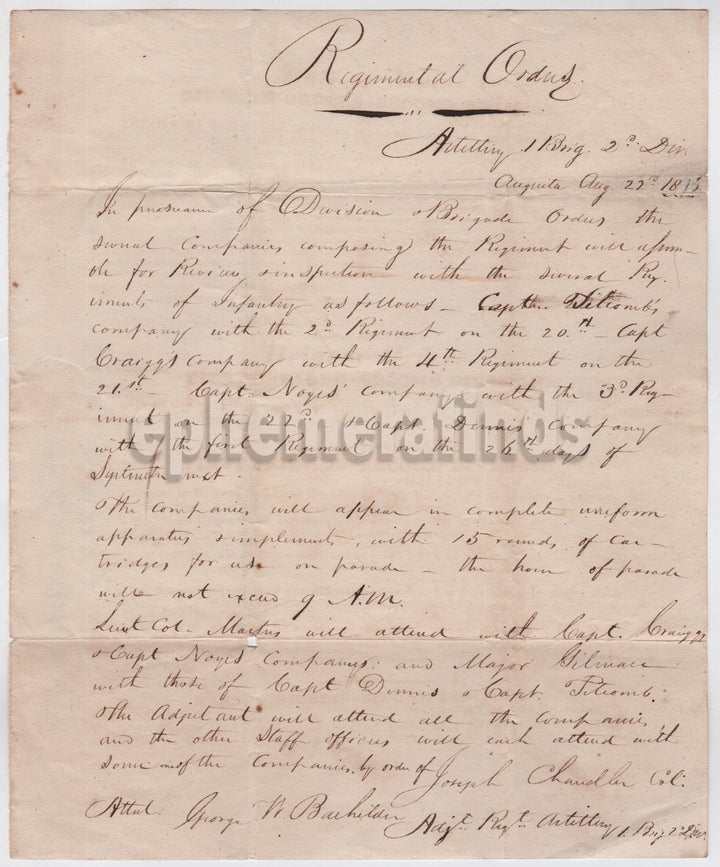 Regimental Orders.
Artillery 1 Brig. 2d. Div
Augusta Aug 22d. 18
In pursuance of Division & Brigade Orders the
several Companies composing the Regiment will assem-
ble for Review & inspection with the several Reg-
iments of Infantry as follows – Capt. Titcomb's
company with the 2d. Regiment on the 20.th – Capt
Craigg's company with the 4th. Regiment on the
21.st – Capt. Noyes' company with the 3d. Reg-
iment on the 22d. & Capt. Dennis' company
with the first Regiment on the 26th days of
September next.
The companies will appear in complete uniform
apparatus & implements, with 15 rounds of car-
tridges for use on parade – the hour of parade
will not exceed 9 A.M.
Lieut Col. will attend with Capt. Craigg's
& Capt Noyes Companys: and Major Gilman
with those of Capt Dennis & Capt. Titcomb.
The Adjutant will attend all the companies,
and the other Staff officers will each attend with
some one of the Companies. by order of Joseph Chandler Col.
Attest. George W. Bachelder Adjt. Regt. Artillery 1. Brig 2d. Div.
ephemerafinds